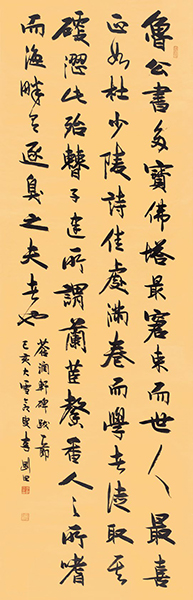 魯公書多寶佛塔最窘束而世人最喜
正如杜少陵詩佳處滿卷而學者徒取其
硬澀此殆曹子建所謂蘭茝馨香人之所嗜
而海畔有逐臭之夫者也
蒼潤軒碑跋一節
己亥大雪 李剛田